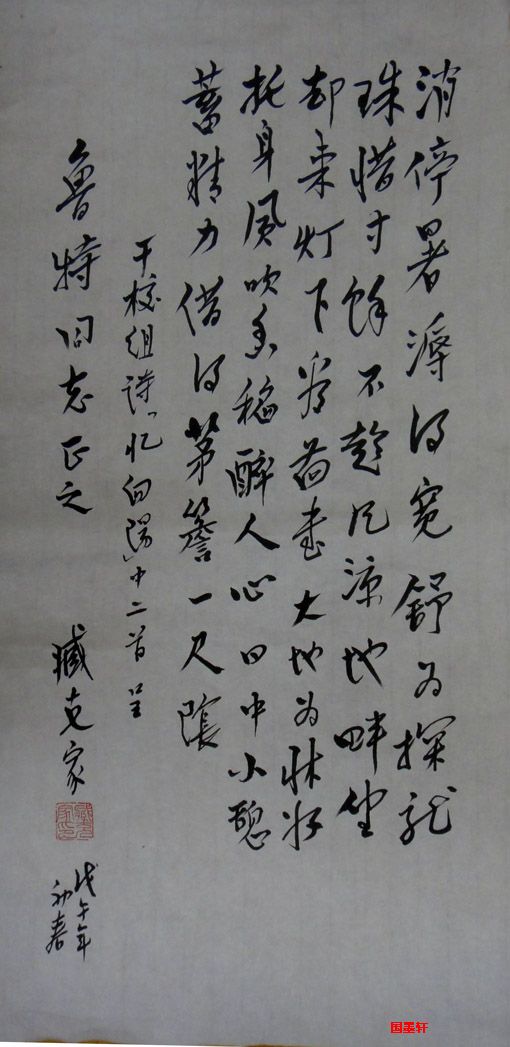 消停暑溽得宽舒为探
珠惜寸餘不趁风凉地畔坐
却来灯下看书大地为床好
托身风吹香稻醉人心日中小憩
蓄精力借得茅簷一尺陰
干校组诗「忆向陽」中二首呈
鲁特同志正之
臧克家
戊午年
初春
国墨轩